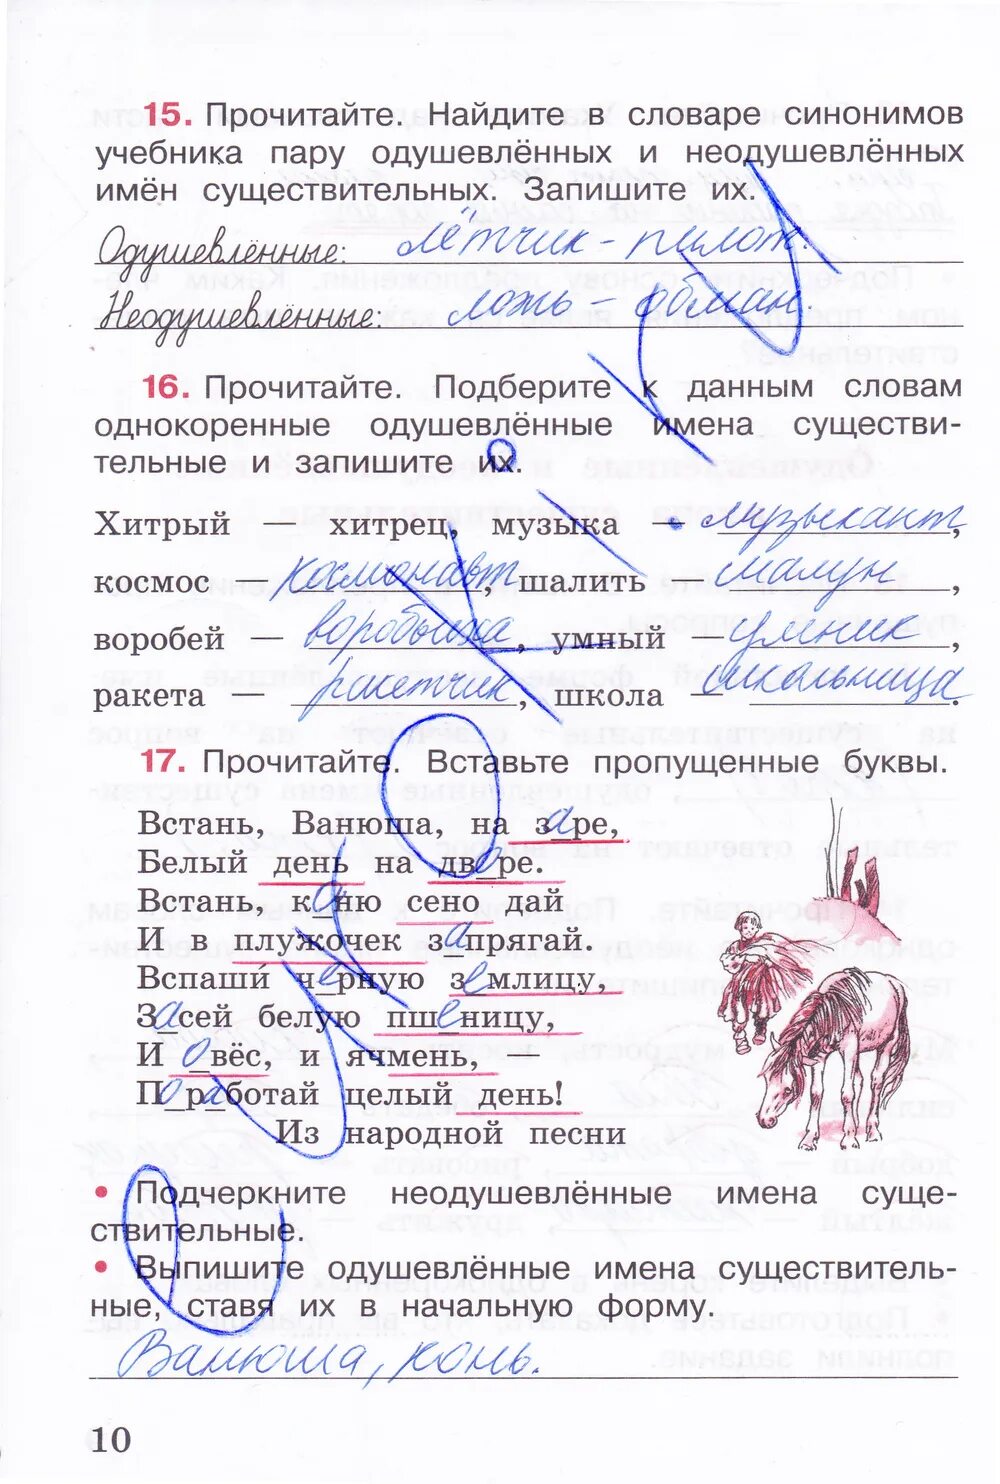 15. Прочитайте. Найдите в словаре синонимов
учебника пару одушевлённых и неодушевлённых
имён существительных. Запишите их.
Одушевлённые: лётчик - пилот.
Неодушевлённые: ложь - обман.
16. Прочитайте. Подберите к данным словам
однокоренные одушевлённые имена существи-
тельные и запишите их.
Хитрый — хитрец, музыка — музыкант,
космос — космонавт, шалить — шалун,
воробей — воробьиха, умный — умник,
ракета — ракетчик, школа — школьница.
17. Прочитайте. Вставьте пропущенные буквы.
Встань, Ванюша, на заре,
Белый день на дворе.
Встань, коню сено дай
И в плужочек запрягай.
Вспаши чёрную землицу,
Засей белую пшеницу,
И овёс, и ячмень, —
Поработай целый день!
Из народной песни
• Подчеркните неодушевлённые имена суще-
ствительные.
• Выпишите одушевлённые имена существитель-
ные, ставя их в начальную форму.
Ванюша, конь.
10